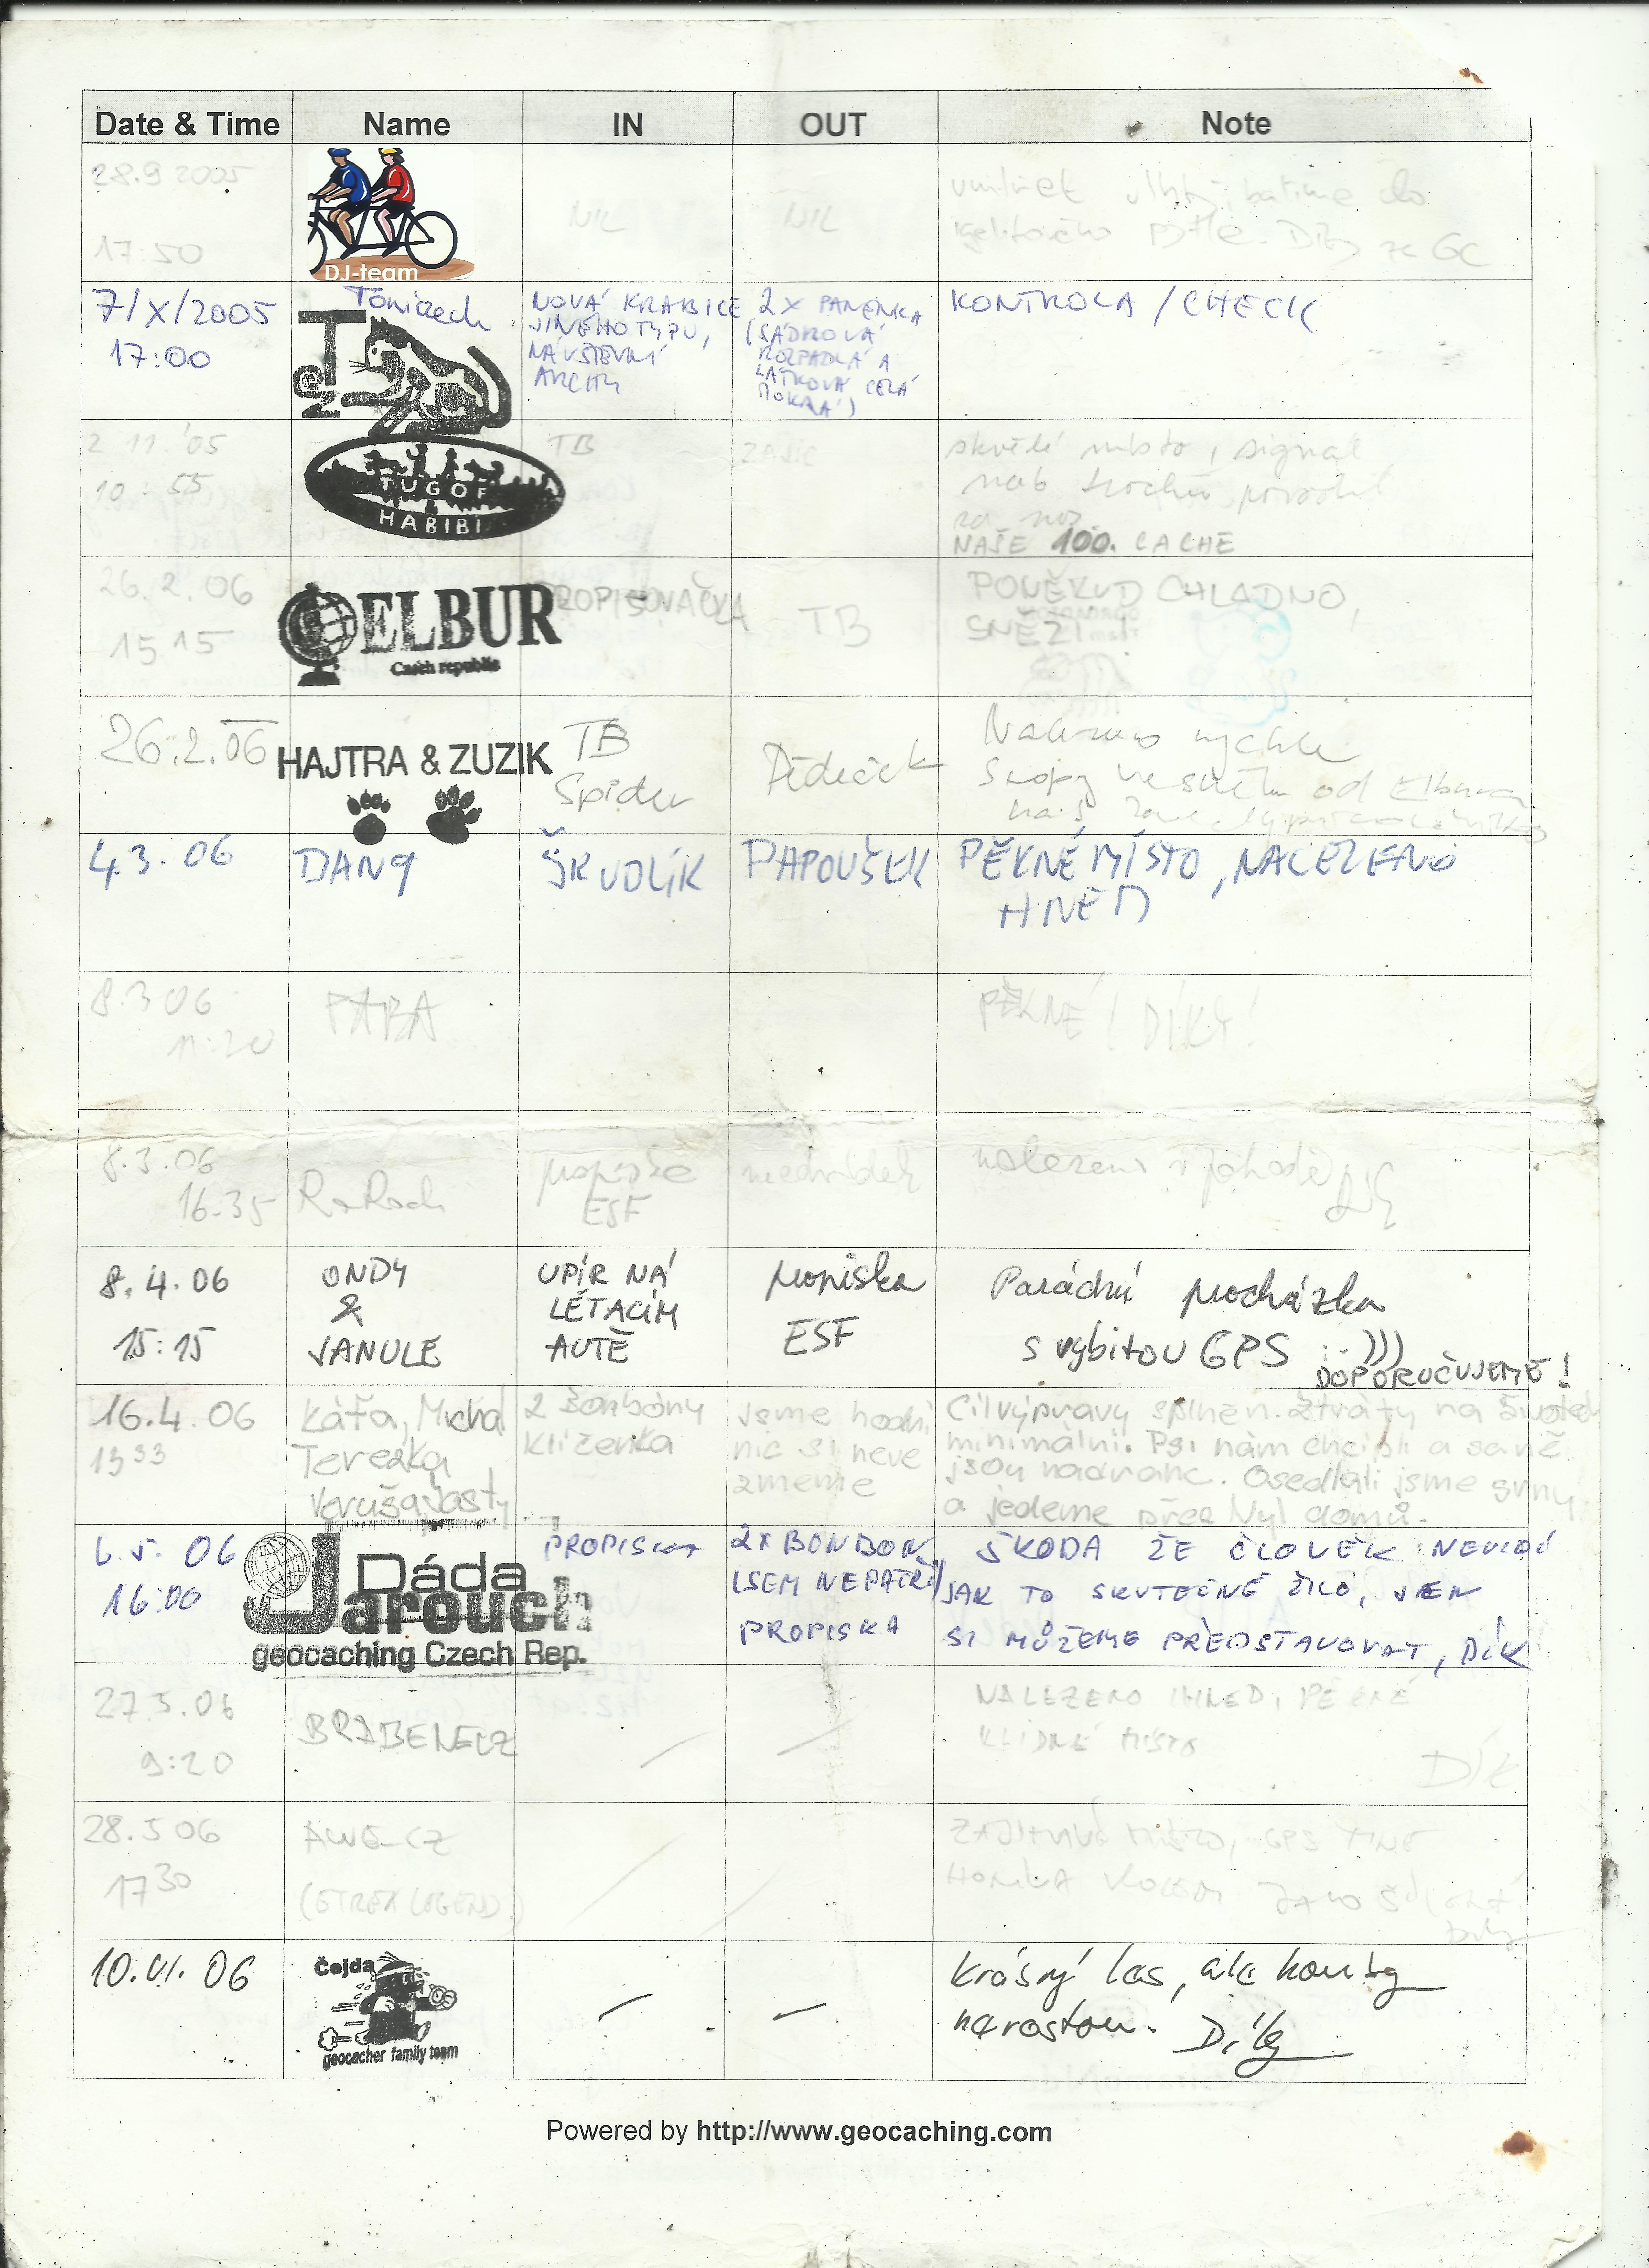 Date & Time Name IN OUT Note
28.9 2005
17:50
DJ-team
NIL
NIL
do
igelitového Díky za GC
7/X/2005
17:00
Tonicech
T@T
NOVÁ KRABICE
JINÉHO TYPU,
NÁVŠTĚVNÍ
ARCHY
2X PANENKA
(SÁDROVÁ
ROZPADLÁ A
LÁTKOVÁ CELÁ
MOKRÁ)
KONTROLA / CHECK
2 11. '05
10:55
TUGOF
HABIBI
TB
ZAJÍC
skvělé místo, signal
nás trochu
za nos
NAŠE 100. CACHE
26.2.06
15 15
ELBUR
Czech republic
PROPISOVAČKA
TB
PONĚKUD CHLADNO,
SNĚŽÍ
26.2.06
HAJTRA & ZUZIK
TB
Spider
Dědeček
Nalezeno rychle
Stopy ve sněhu od Elbura
4.3.06
DAN9
ŠKUDLÍK
PAPOUŠEK
PĚKNÉ MÍSTO, NALEZENO
HNED
8.3 06
11:20
PABA
PĚKNÉ! DÍKY!
8.3.06
16.35
RaRach
propiska
ESF
medvídek
nalezeno v pohodě Dík
8.4.06
15:15
ONDY
&
JANULE
UPÍR NA
LÉTACÍM
AUTĚ
propiska
ESF
Parádní procházka
s vybitou GPS :-)))
DOPORUČUJEME!
16.4.06
13 33
Káťa, Michal
Terezka
Veruša
2 Bonbóny
Klíčenka
jsme hodní
nic si neve
zmeme
Cíl výpravy splněn. Ztráty na životech
minimální. Psi nám chcípli a saně
jsou nadranc. Osedlali jsme srny
a jedeme přes Nyl domů.
6.5.06
16:00
Dáda
Jarouch
geocaching Czech Rep.
PROPISKA
2X BONBON
(SEM NEPATŘÍ)
PROPISKA
ŠKODA ŽE ČLOVĚK NEVIDÍ
JAK TO SKUTEČNĚ ŽILO, JEN
SI MŮŽEME PŘEDSTAVOVAT, DÍK
27.5.06
9:20
BRABENECZ
NALEZENO IHNED, PĚKNÉ
KLIDNÉ MÍSTO
DÍK
28.5 06
17 30
AWE-CZ
(ETREX LEGEND)
ZAJÍMAVÉ MÍSTO, GPS
HONILA KOLEM JAKO
10.VI.06
Čejda
geocacher family team
Krásný les, ale houby
nerostou. Díky
Powered by http://www.geocaching.com